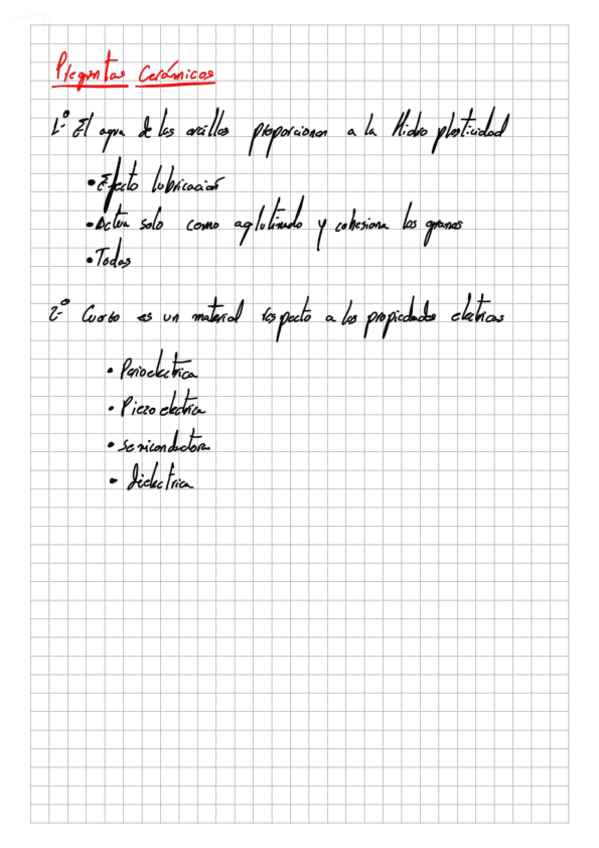 Preguntas Cerámicos
1.º El agua de las arcillas proporcionan a la Hidro plasticidad
• Efecto lubricación
• Actua solo como aglutinado y cohesiona los granos
• Todas
2.º Cuarzo es un material respecto a las propiedades electricas
• Paroelectrica
• Piezo electrica
• Semiconductora
• Dielectrica